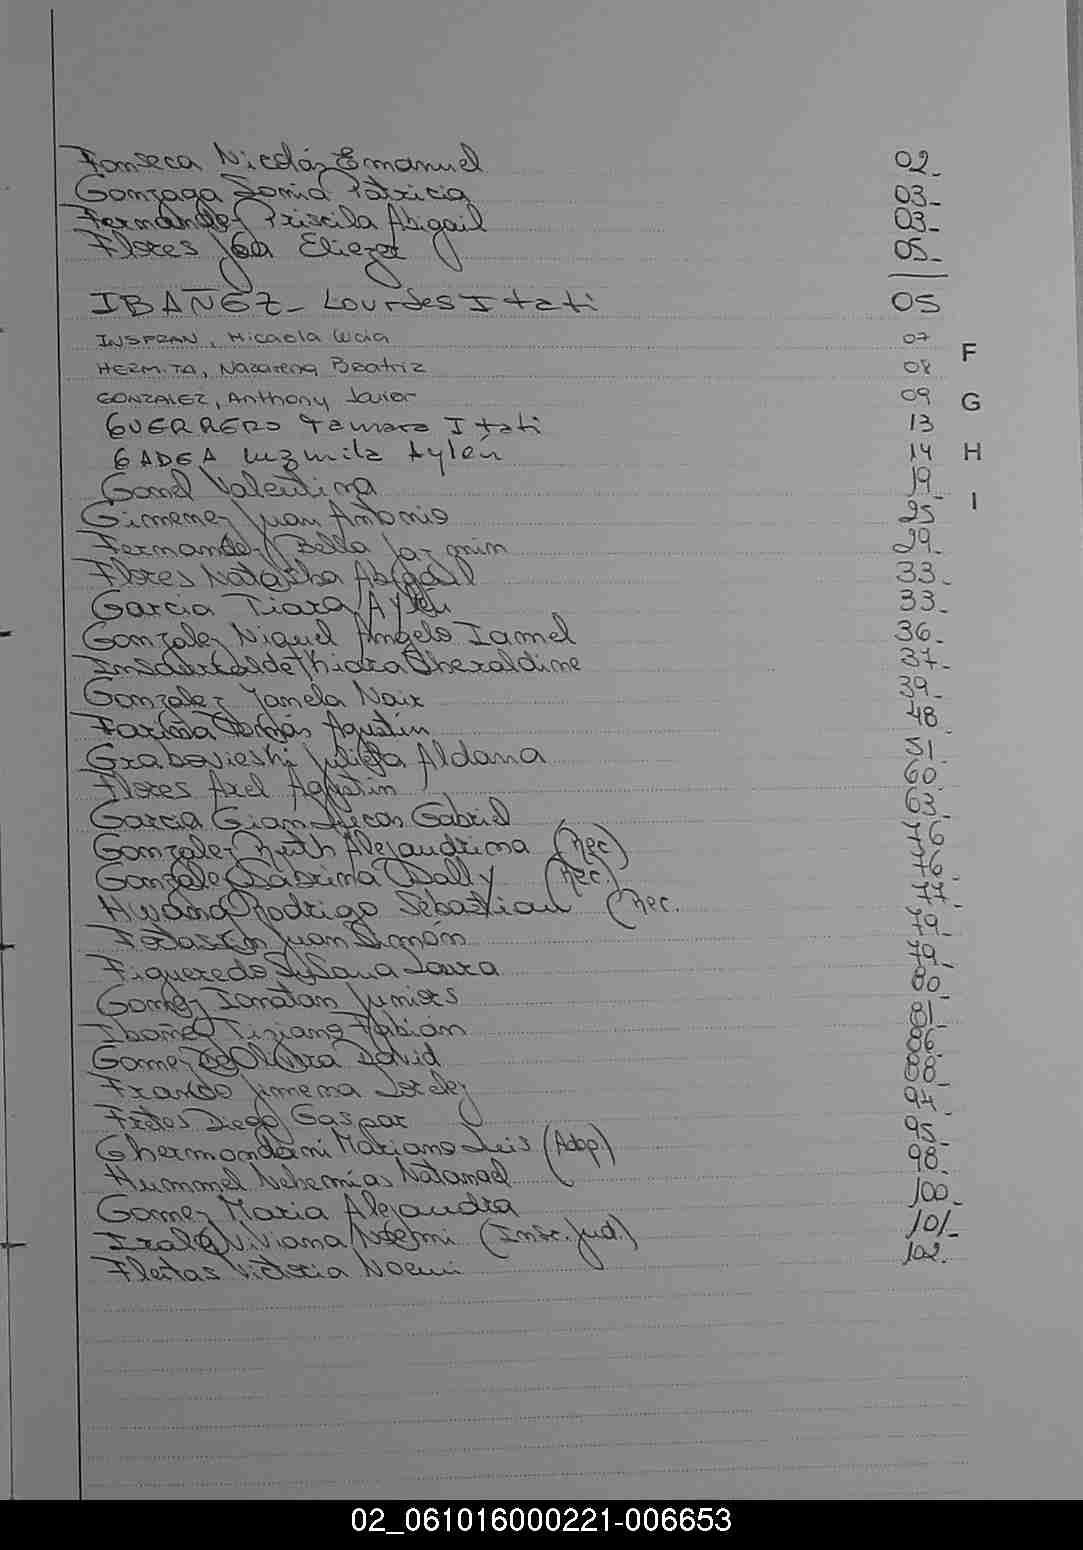 Fonseca Nicolás Emanuel 02.
Gonzaga Sonia Patricia 03.
Fernandez Priscila Abigail 03.
Flores Eliezer 05.
IBAÑEZ - Lourdes Itati 05
INSFRAN, Micaela Lucia 07
HERMITA, Nazarena Beatriz 08
F
GONZALEZ, Anthony Javier 09
G
GUERRERO Tamara Itati 13
GADEA Luzmila Aylén 14
H
Gomel Valentina 19.
I
Gimenez Juan Antonio 25.
Fernandez Bella Jazmin 29.
Flores Natasha Abigail 33.
Garcia Tiara Aylen 33.
Gonzalez Miguel Angelo Iamel 36.
Gheraldine 37.
Gonzalez Yamela Naix 39.
Fariña Tomás Agustín 48
Grabovieski Julieta Aldana 51.
Flores Axel Agustin 60.
Garcia Gian Lucas Gabriel 63.
Gonzalez Ruth Alejandrina (Rec) 76.
Gonzalez Sabrina (Rec.) 76.
Hwang Rodrigo Sebastian (Rec. 77.
Juan Simón 79.
Figueredo Susana Laura 79.
Gomez Jonatan Juniors 80.
Ibañez Tiziano Fabián 81.
Gomez David 86.
Franco Jimena 88.
Fretes Diego Gaspar 94.
Mariano Luis (Adop.) 95.
Hummel Nehemías Natanael 98.
Gomez Maria Alejandra 100.
Irala Viviana Noemi (Insc. Jud.) 101.
Fleitas Victoria Noemi 102.
02_061016000221-006653